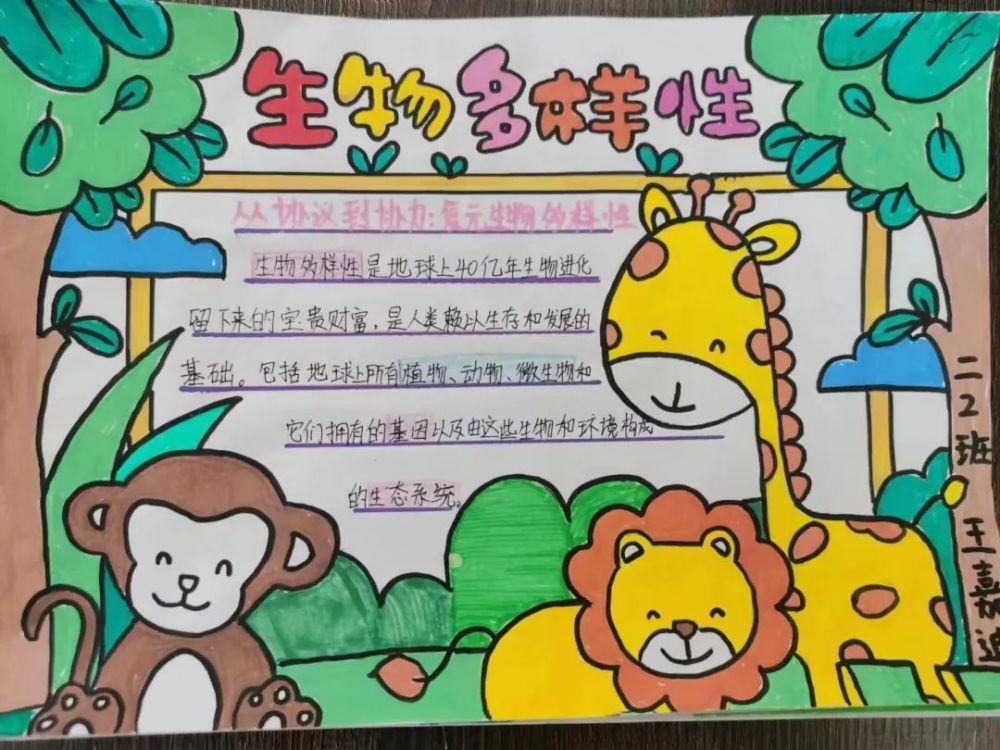 生物多样性
从协议到协力:复元生物多样性
生物多样性是地球上40亿年生物进化
留下来的宝贵财富,是人类赖以生存和发展的
基础。包括地球上所有植物、动物、微生物和
它们拥有的基因以及由这些生物和环境构成
的生态系统。
二2班 王嘉